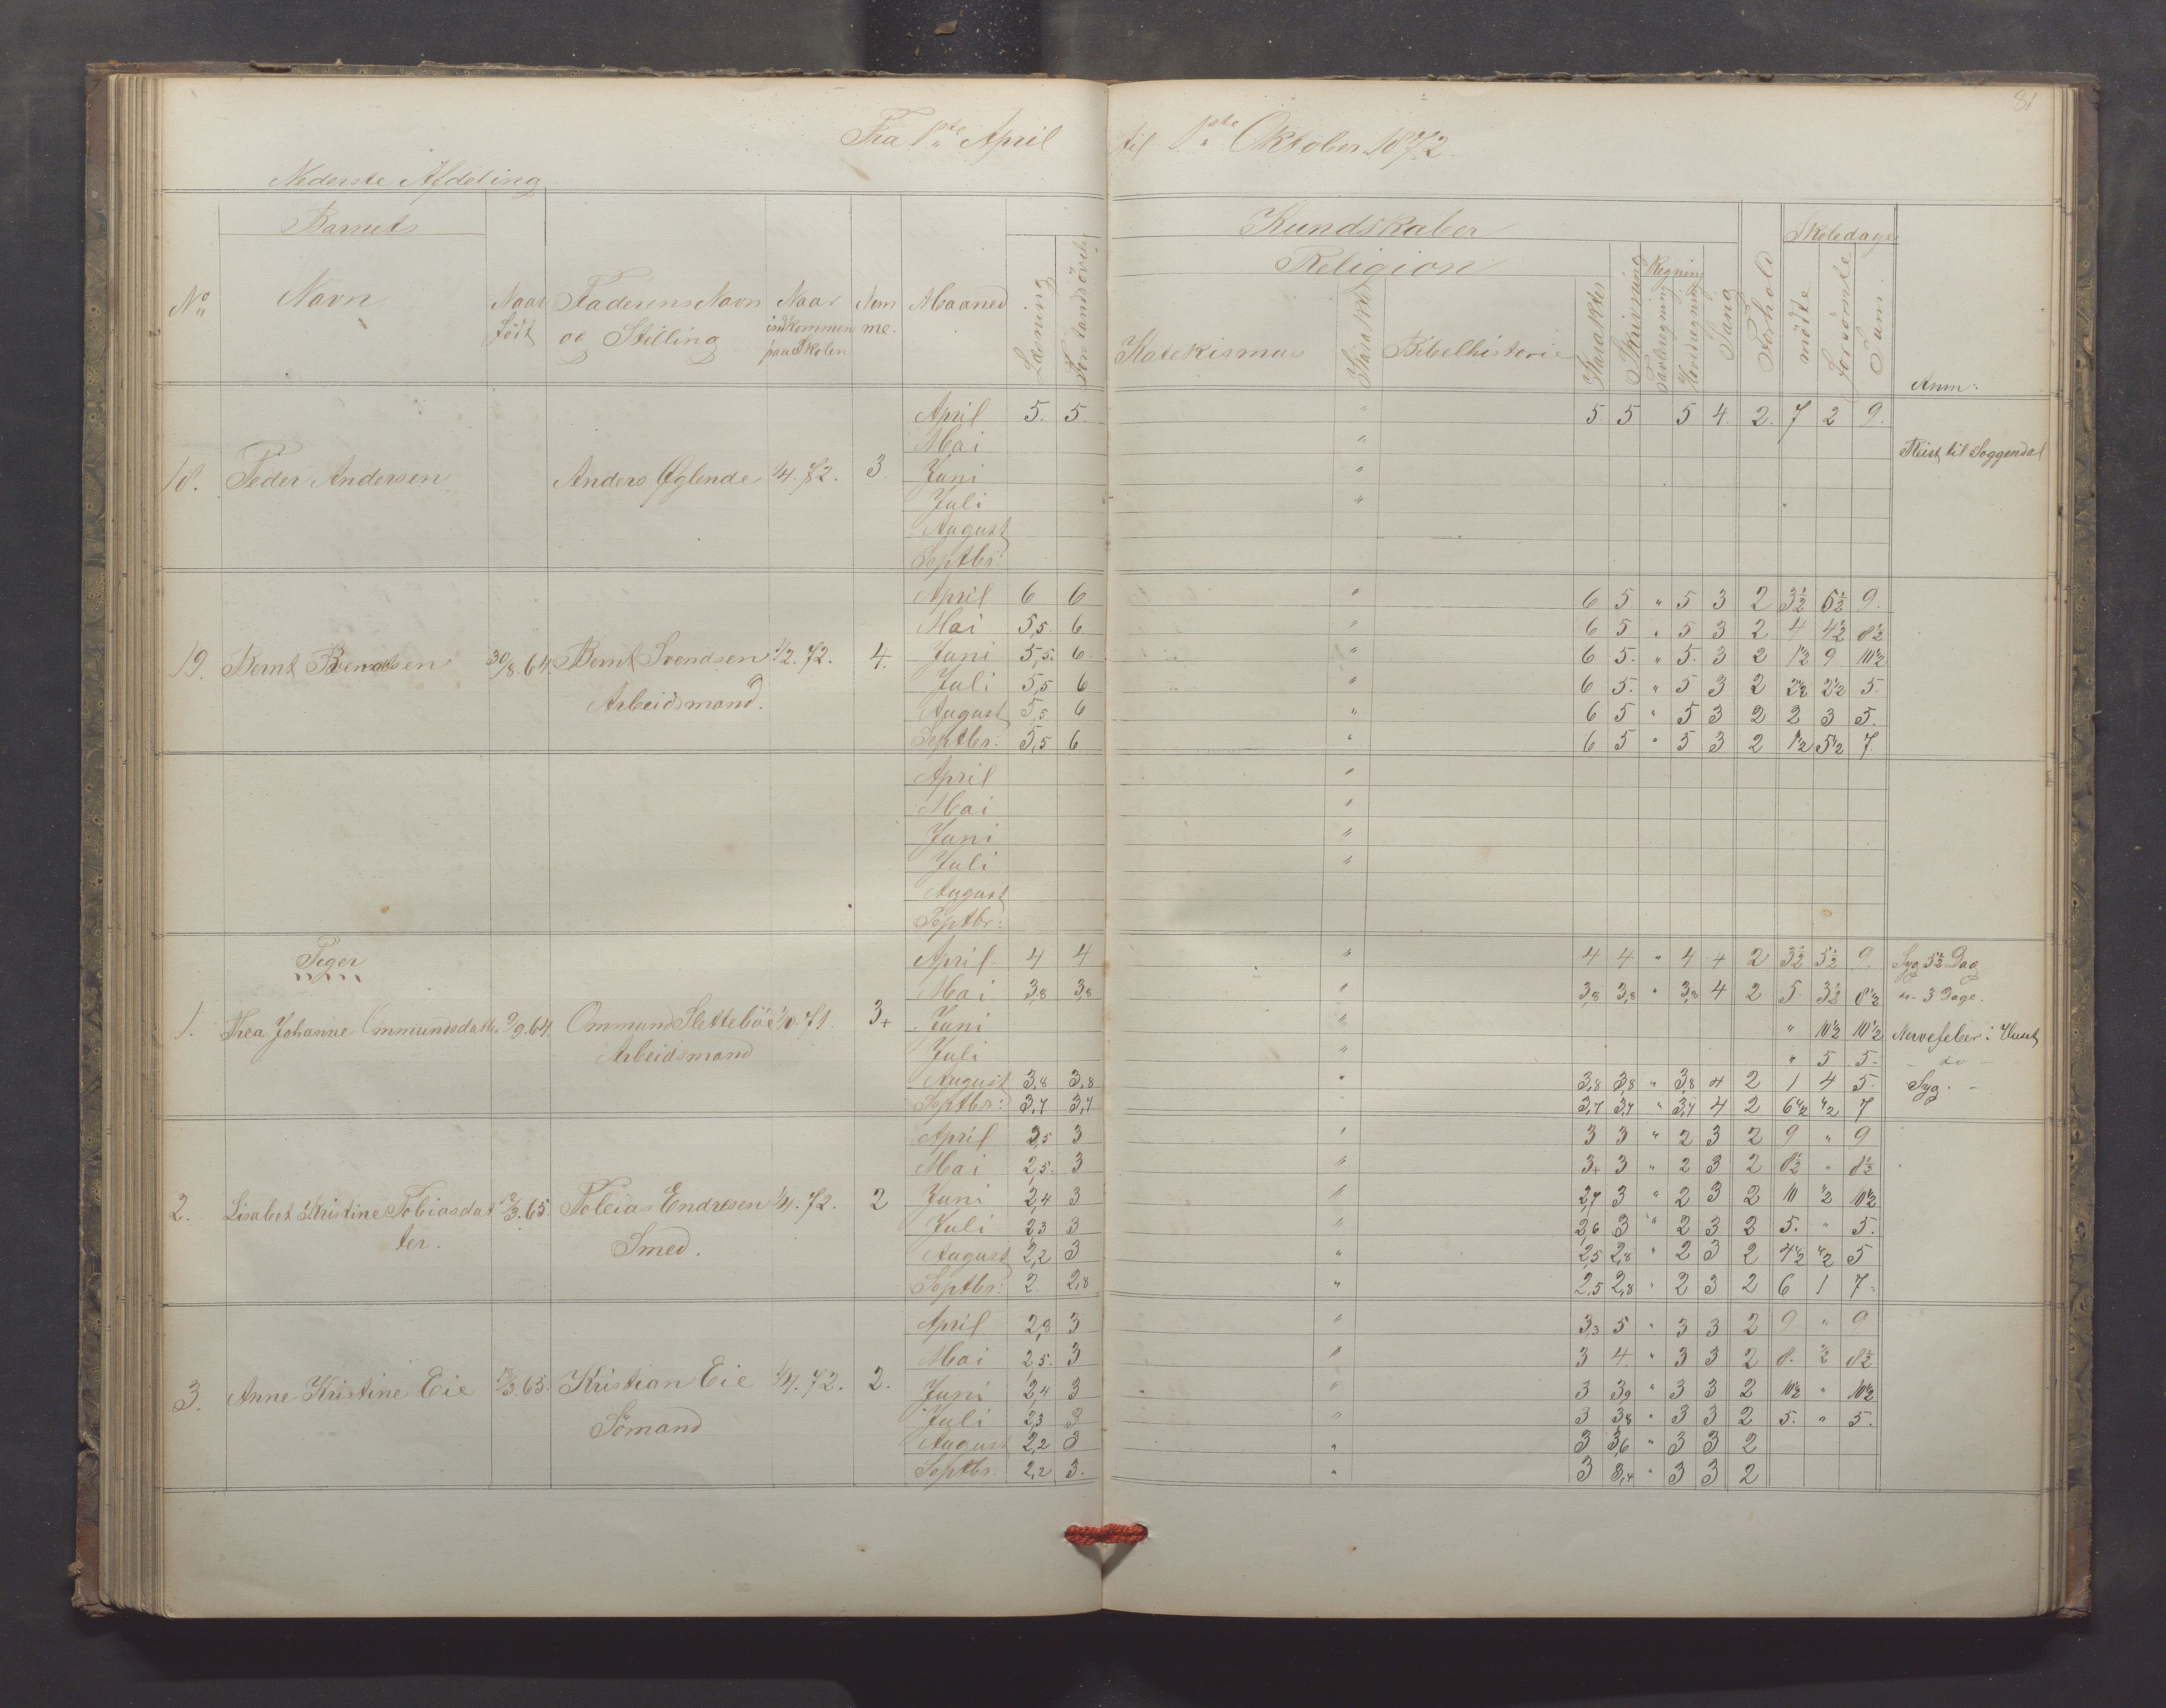 81
Fra 1ste April til 1ste Oktober 1872.
Nederste Afdeling
Barnets Kundskaber Skoledage
Religion Regning
No Navn Naar født Faderens Navn og Stilling Naar indkommen paa Skolen Nemme. Maaned Læsning Forstandsövelse Katekismus Karakter Bibelhistorie Karakter Skrivning Tavleregning Hovedregning Sang Forhold mödte forsömte Sum Anm:
April 5. 5. " 5. 5 5 4. 2. 7 2 9.
Mai " Reist til Soggendal
18. Peder Andersen Anders Øglende 1/4. 72. 3. Juni "
Juli "
August
Septbr:
April 6 6 " 6 5 " 5 3 2 3½ 5½ 9.
Mai 5,5. 6 " 6 5 " 5 3 2 4 4½ 8½
19. Bernt Berntsen 30/8. 64. Bernt Svendsen 1/2. 72. 4. Juni 5,5. 6. " 6 5. " 5. 3 2 1½ 9 10½
Juli 5,5 6 " 6 5. " 5 3 2 2½ 2½ 5.
Arbeidsmand. August 5,5 6 " 6 5 " 5 3 2 2 3 5.
Septbr: 5,5 6 " 6 5 " 5 3 2 1½ 5½ 7.
April "
Mai "
Juni "
Juli "
August
Septbr:
Piger
April 4 4 " 4 4 " 4 4 2 3½ 5½ 9. Syg 5½ Dag
Mai 3,8 3,8 " 3,8 3,8 " 3,8 4 2 5. 3½ 8½ do- 3 Dage.
1. Thea Johanne Ommundsdatt. 9/9. 64. Ommund Sletteböe 1/10. 71. 3+ Juni " " 10½ 10½ Nervefeber i Huset
Arbeidsmand Juli " " 5 5. - do -
August 3,8 3,8 " 3,8 3,8 " 3,8 4 2 1 4 5. Syg. -
Septbr: 3,7 3,7 3,7 3,7 " 3,7 4 2 6½ ½ 7
April 2,5 3 " 3 3 " 2 3 2 9 " 9
Mai 2,5. 3 " 3+ 3 " 2 3 2 8½ " 8½
2. Lisabet Kristine Tobiasdat 12/3. 65. Tobias Endresen 1/4. 72. 2 Juni 2,4 3 " 2,7 3 " 2 3 2 10 ½ 10½
ter. Smed. Juli 2,3 3 " 2,6 3 " 2 3 2 5. " 5.
August 2,2 3 " 2,5 2,8 " 2 3 2 4½ ½ 5
Septbr: 2 2,8 " 2,5 2,8 " 2 3 2 6 1 7.
April 2,8 3 " 3,3 5 " 3 3 2 9 " 9
Mai 2,5. 3 " 3 4. " 3 3 2 8. ½ 8½
3. Anne Kristine Eie Kristian Eie 1/4. 72. 2. Juni 2,4 3 " 3 3,9 " 3 3 2 10½ " 10½
Sömand Juli 2,3 3 " 3 3,8 " 3 3 2 5. " 5.
August 2,2 3 " 3 3,6 " 3 3 2
Septbr: 2,2 3. " 3 3,4 " 3 3 2